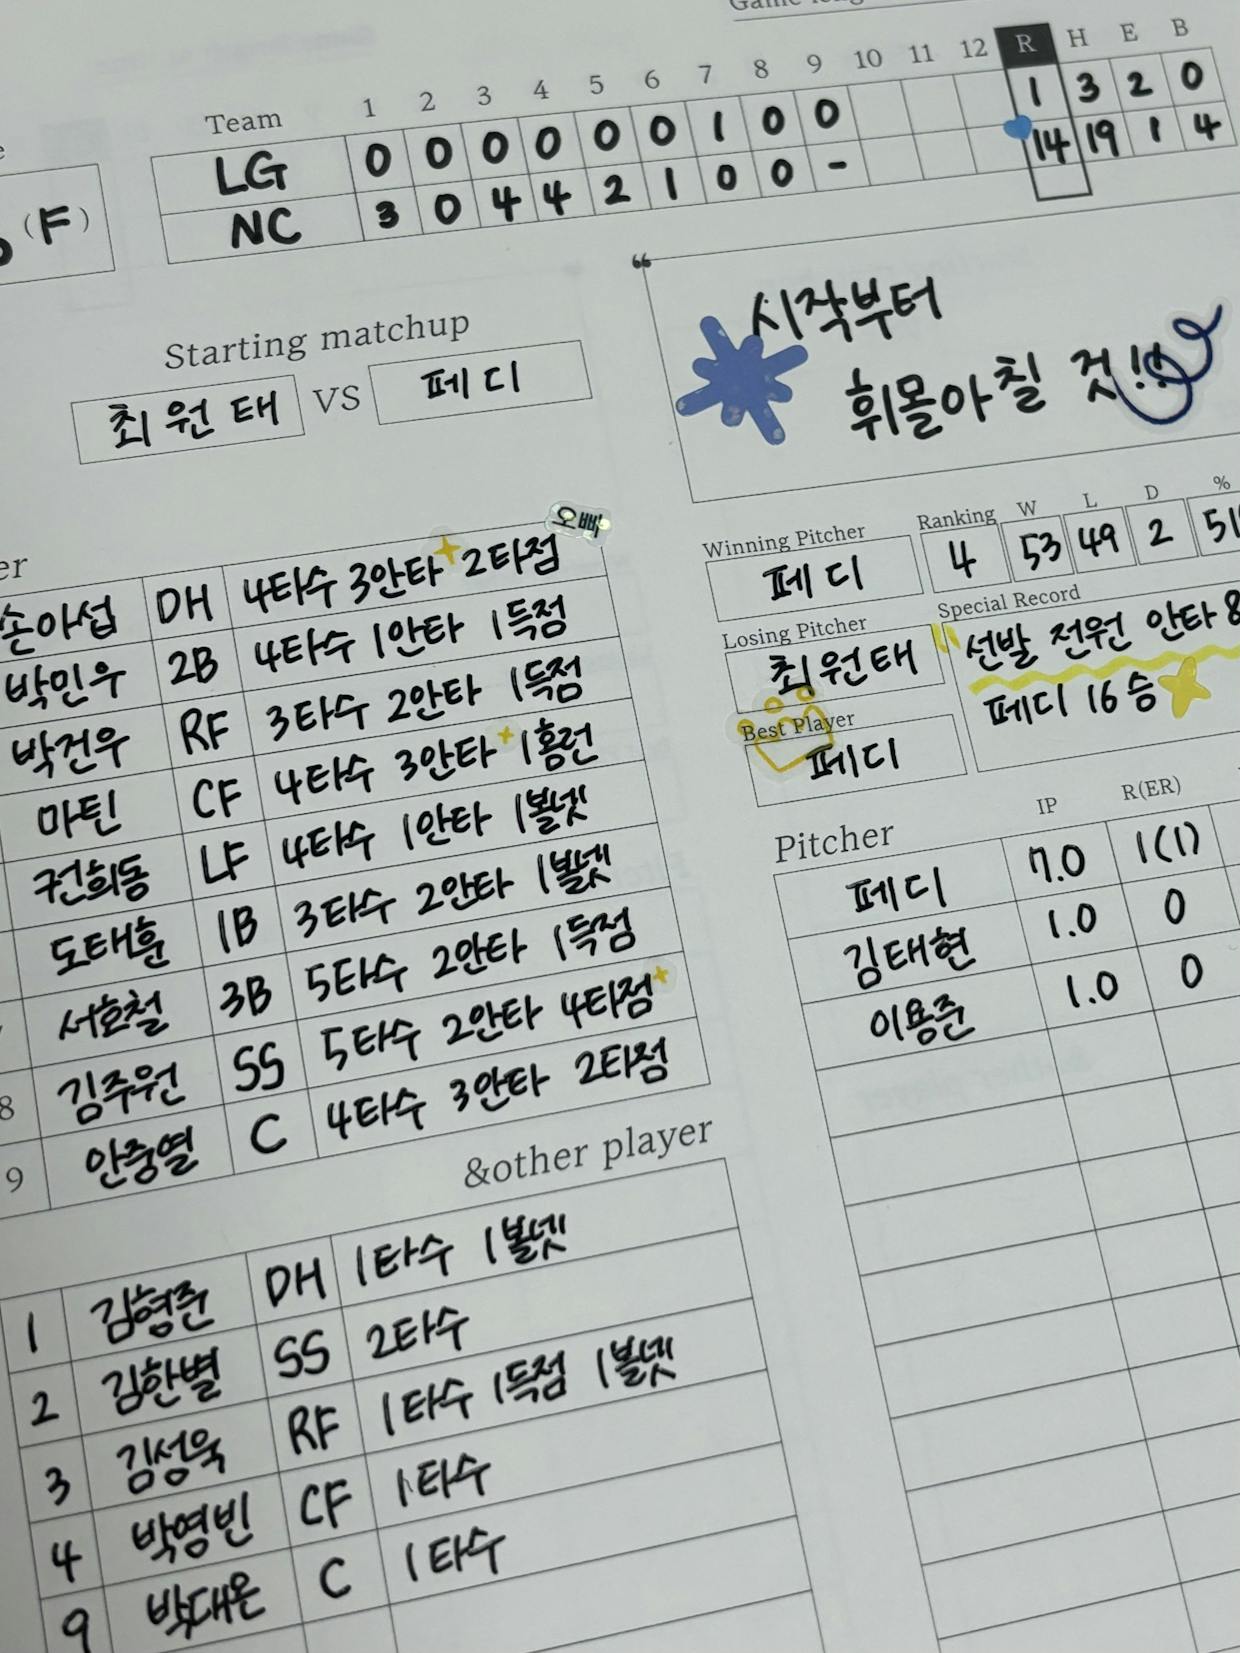 Team 1 2 3 4 5 6 7 8 9 10 11 12 R H E B
LG 0 0 0 0 0 0 1 0 0 1 3 2 0
NC 3 0 4 4 2 1 0 0 - 14 19 1 4
(F)
Starting matchup
최원태 VS 페디
“
시작부터
휘몰아칠 것!!
오빠
손아섭 DH 4타수 3안타 2타점
박민우 2B 4타수 1안타 1득점
박건우 RF 3타수 2안타 1득점
마틴 CF 4타수 3안타 1홈런
권희동 LF 4타수 1안타 1볼넷
도태훈 1B 3타수 2안타 1볼넷
서호철 3B 5타수 2안타 1득점
8 김주원 SS 5타수 2안타 4타점
9 안중열 C 4타수 3안타 2타점
&other player
1 김형준 DH 1타수 1볼넷
2 김한별 SS 2타수
3 김성욱 RF 1타수 1득점 1볼넷
4 박영빈 CF 1타수
9 박대온 C 1타수
Winning Pitcher
페디
Ranking W L D %
4 53 49 2
Losing Pitcher
최원태
Special Record
선발 전원 안타
페디 16승
Best Player
페디
Pitcher IP R(ER)
페디 7.0 1(1)
김태현 1.0 0
이용준 1.0 0